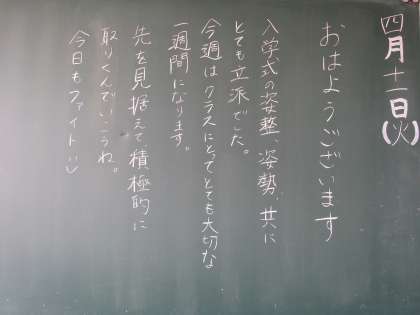 四月十一日(火)
おはようございます
入学式の姿整、姿勢、共に
とても立派でした。
今週はクラスにとってとても大切な
一週間になります。
先を見据えて、積極的に
取りくんでいこうね。
今日もファイト!!